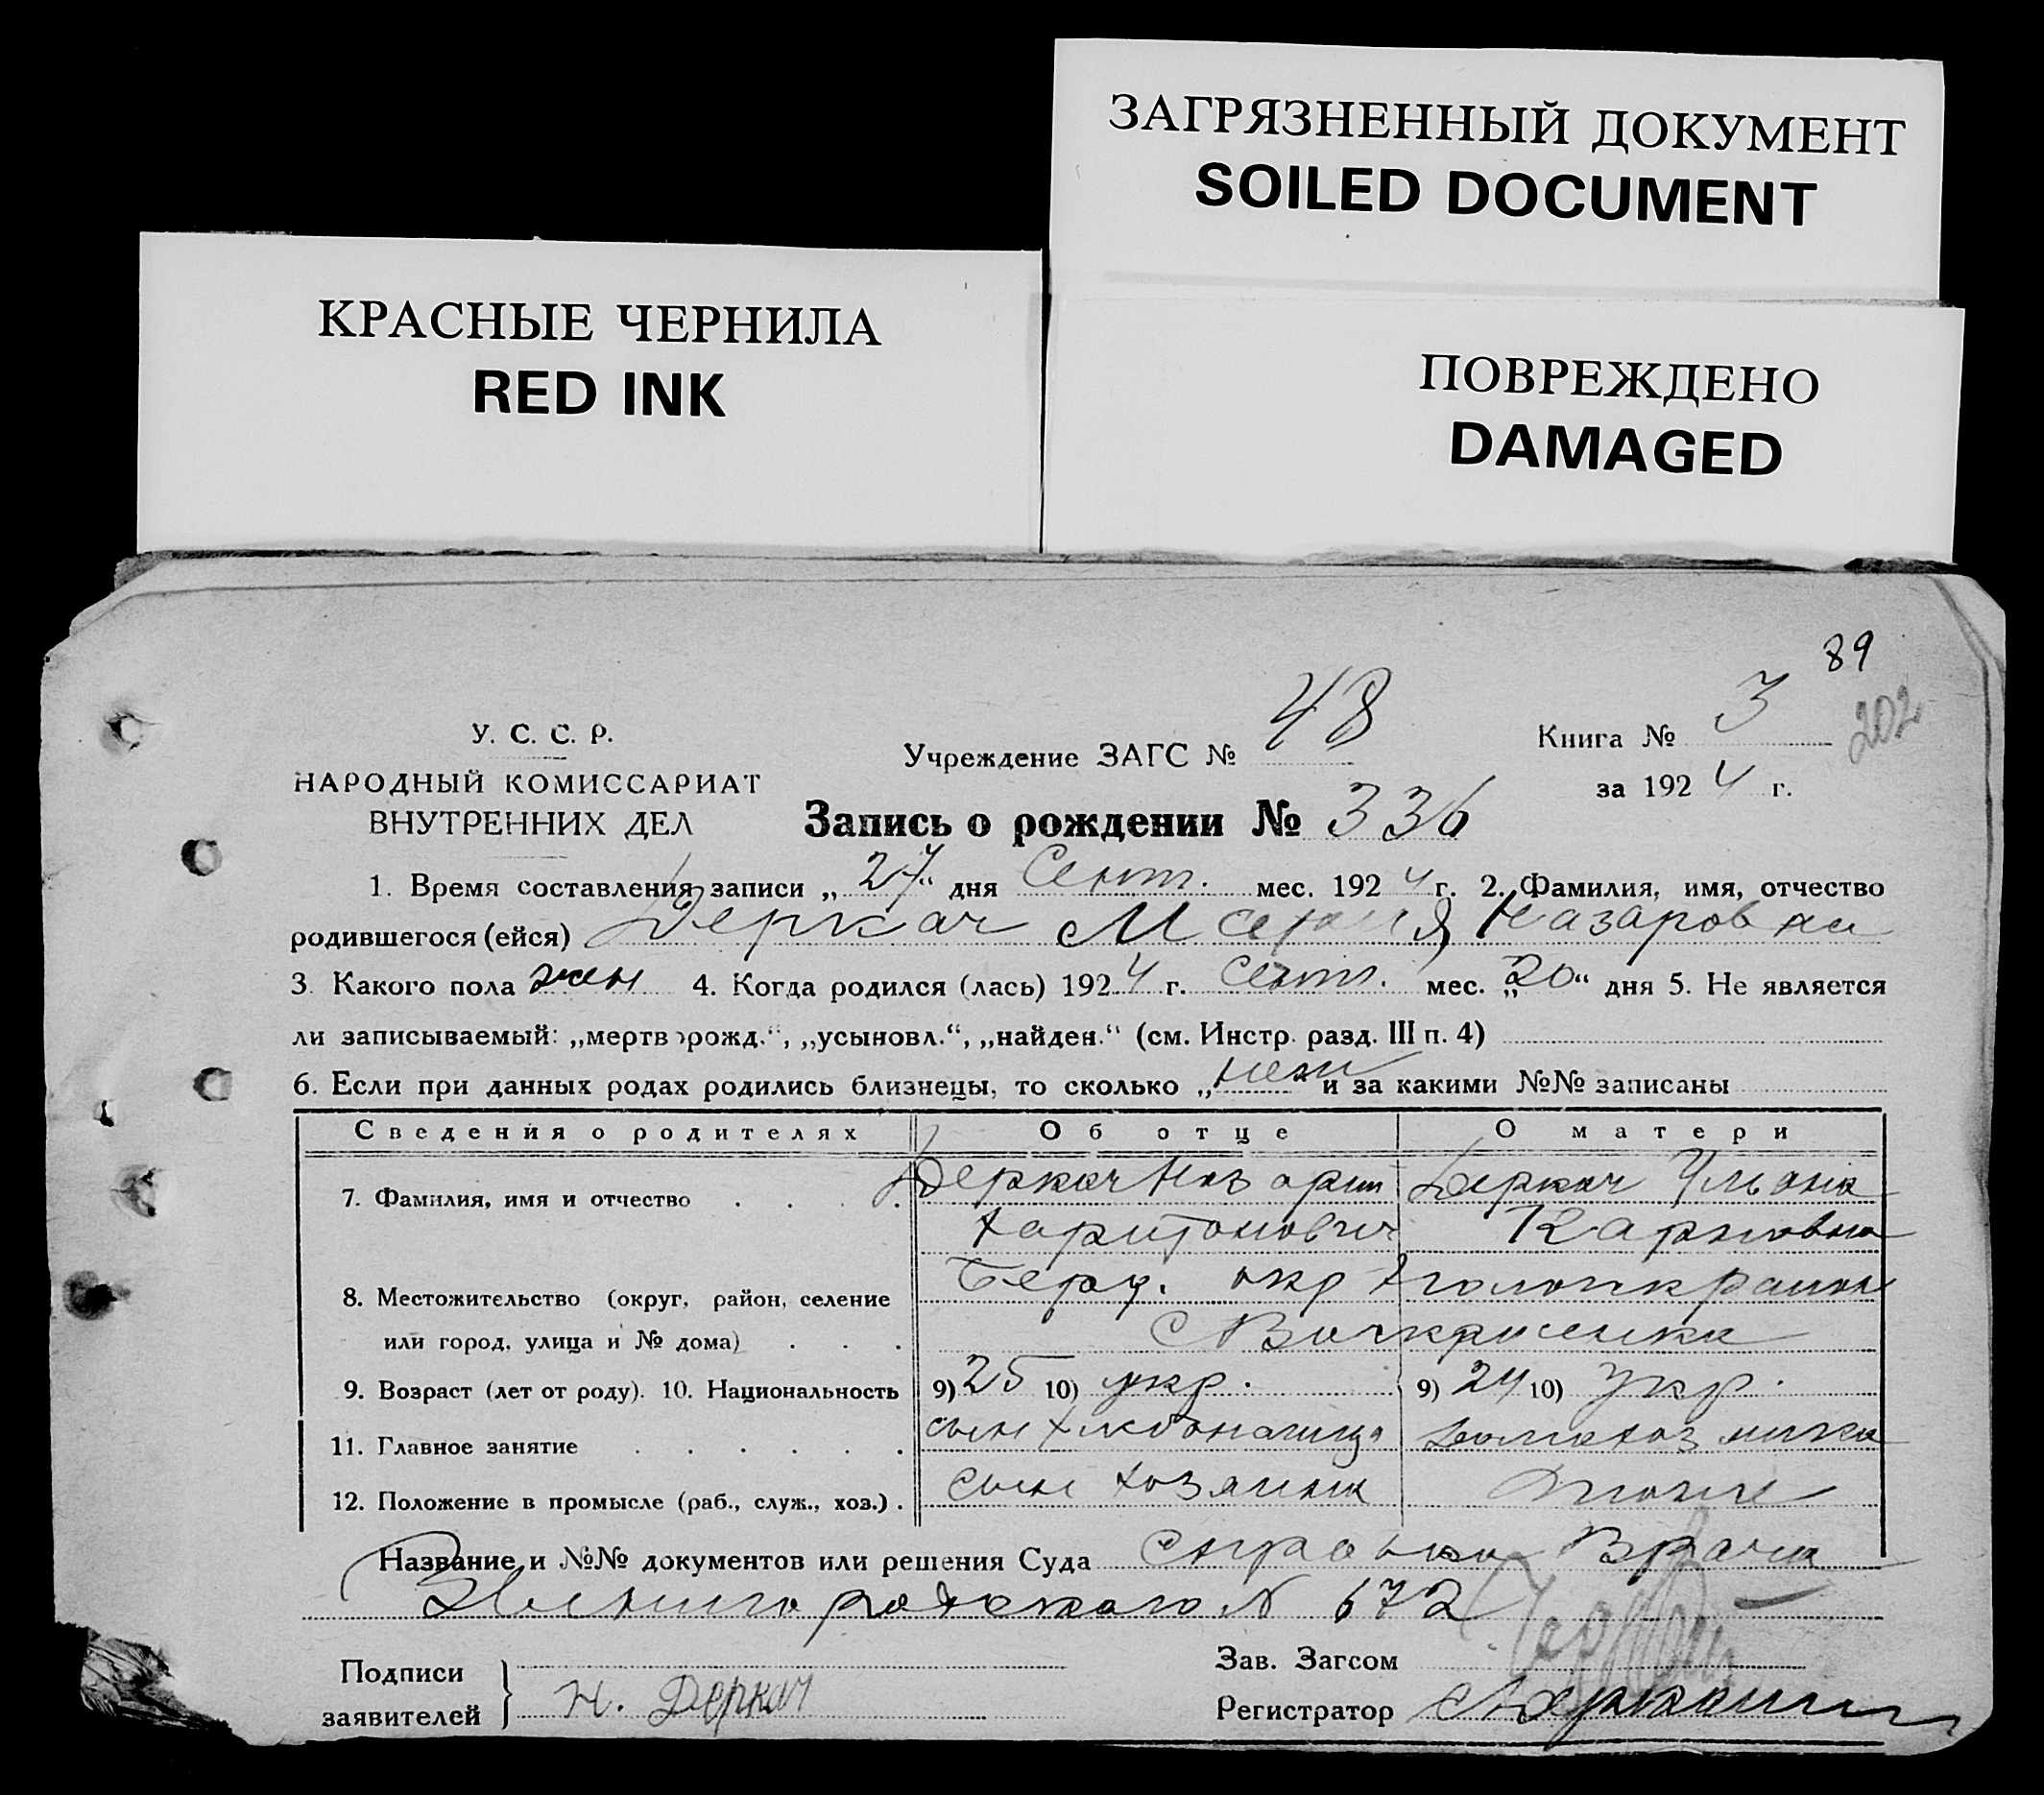 ЗАГРЯЗНЕННЫЙ ДОКУМЕНТ
SOILED DOCUMENT
КРАСНЫЕ ЧЕРНИЛА
RED INK
ПОВРЕЖДЕНО
DAMAGED
89
202
У. С. С. Р.
НАРОДНЫЙ КОМИССАРИАТ
ВНУТРЕННИХ ДЕЛ
Учреждение ЗАГС № 48
Книга № 3
за 1924 г.
Запись о рождении № 336
1. Время составления записи „27“ дня Сент. мес. 1924 г. 2. Фамилия, имя, отчество
родившегося (ейся) Деркач Мария Назаровна
3. Какого пола жен 4. Когда родился (лась) 1924 г. Сент. мес. „20“ дня 5. Не является
ли записываемый: „мертворожд.“, „усыновл.“, „найден.“ (см. Инстр. разд. III п. 4)
6. Если при данных родах родились близнецы, то сколько „нет“ и за какими №№ записаны
Сведения о родителях Об отце О матери
7. Фамилия, имя и отчество Деркач Назарий Деркач Ульяна
Харитонович Карповна
8. Местожительство (округ, район, селение Берд. окр
или город, улица и № дома) С
9. Возраст (лет от роду). 10. Национальность 9) 25 10) укр. 9) 24 10) Укр.
11. Главное занятие сын хлебопашца домохозяйка
12. Положение в промысле (раб., служ., хоз.) сын хозяина
Название и №№ документов или решения Суда Справка Врача
N 672
Подписи
заявителей Н. Деркач
Зав. Загсом
Регистратор